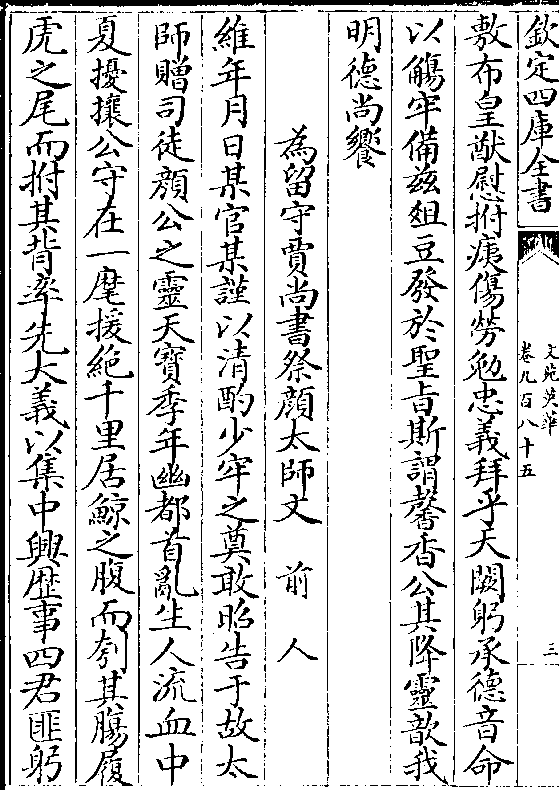 欽定四庫全書
文苑英華
卷九百八十五
三
敷布皇猷慰拊痍傷勞勉忠義拜乎天闕躬承德音命
以觴牢備兹俎豆發於聖旨斯謂馨香公其降靈歆我
明德尚饗
為留守賈尚書祭顔太師文　前人
維年月日某官某謹以清酌少牢之奠敢昭告于故太
師贈司徒顔公之靈天寳季年幽都首亂生人流血中
夏擾攘公守在一麾援絶千里居鯨之腹而刳其腸履
虎之尾而拊其背率先大義以集中興歴事四君匪躬